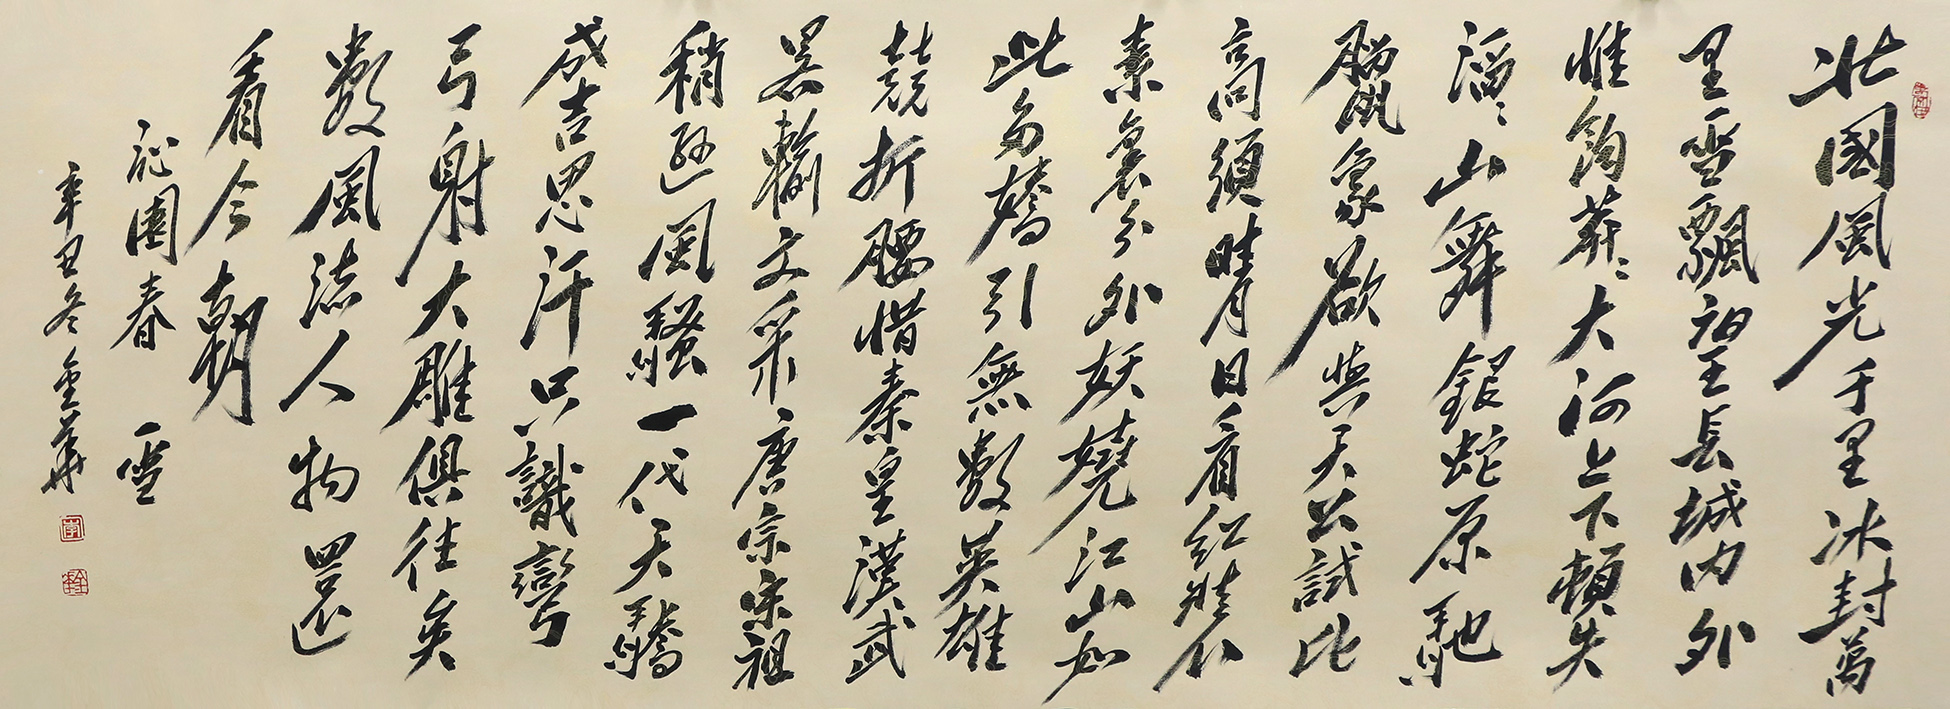 北國風光千里冰封萬
里雪飄望長城内外
惟餘莽〻大河上下頓失
滔〻山舞銀蛇原馳
臘象欲與天公試比
高須晴日看紅裝
素裹分外妖嬈江山如
此多嬌引無數英雄
競折腰惜秦皇漢武
略輸文采唐宗宋祖
稍遜風騷一代天驕
成吉思汗只識彎
弓射大雕俱往矣
數風流人物還
看今朝
沁園春 雪
辛丑冬金華